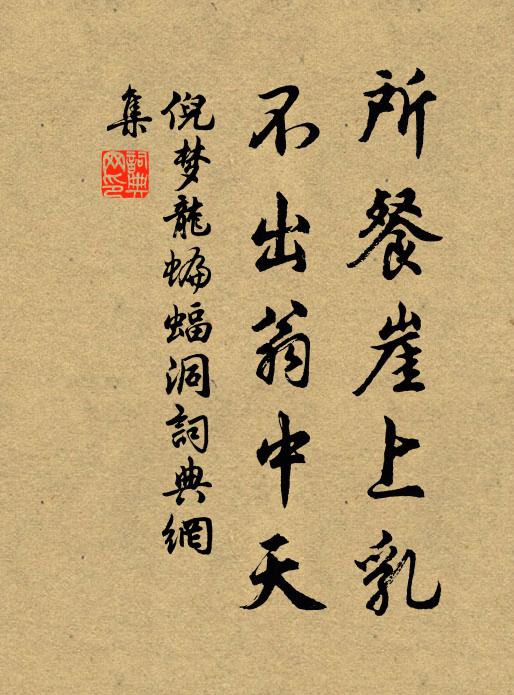 所餐崖上乳
不出翁中天
倪梦龍蝙蝠洞詞典網
集
詞典
网印